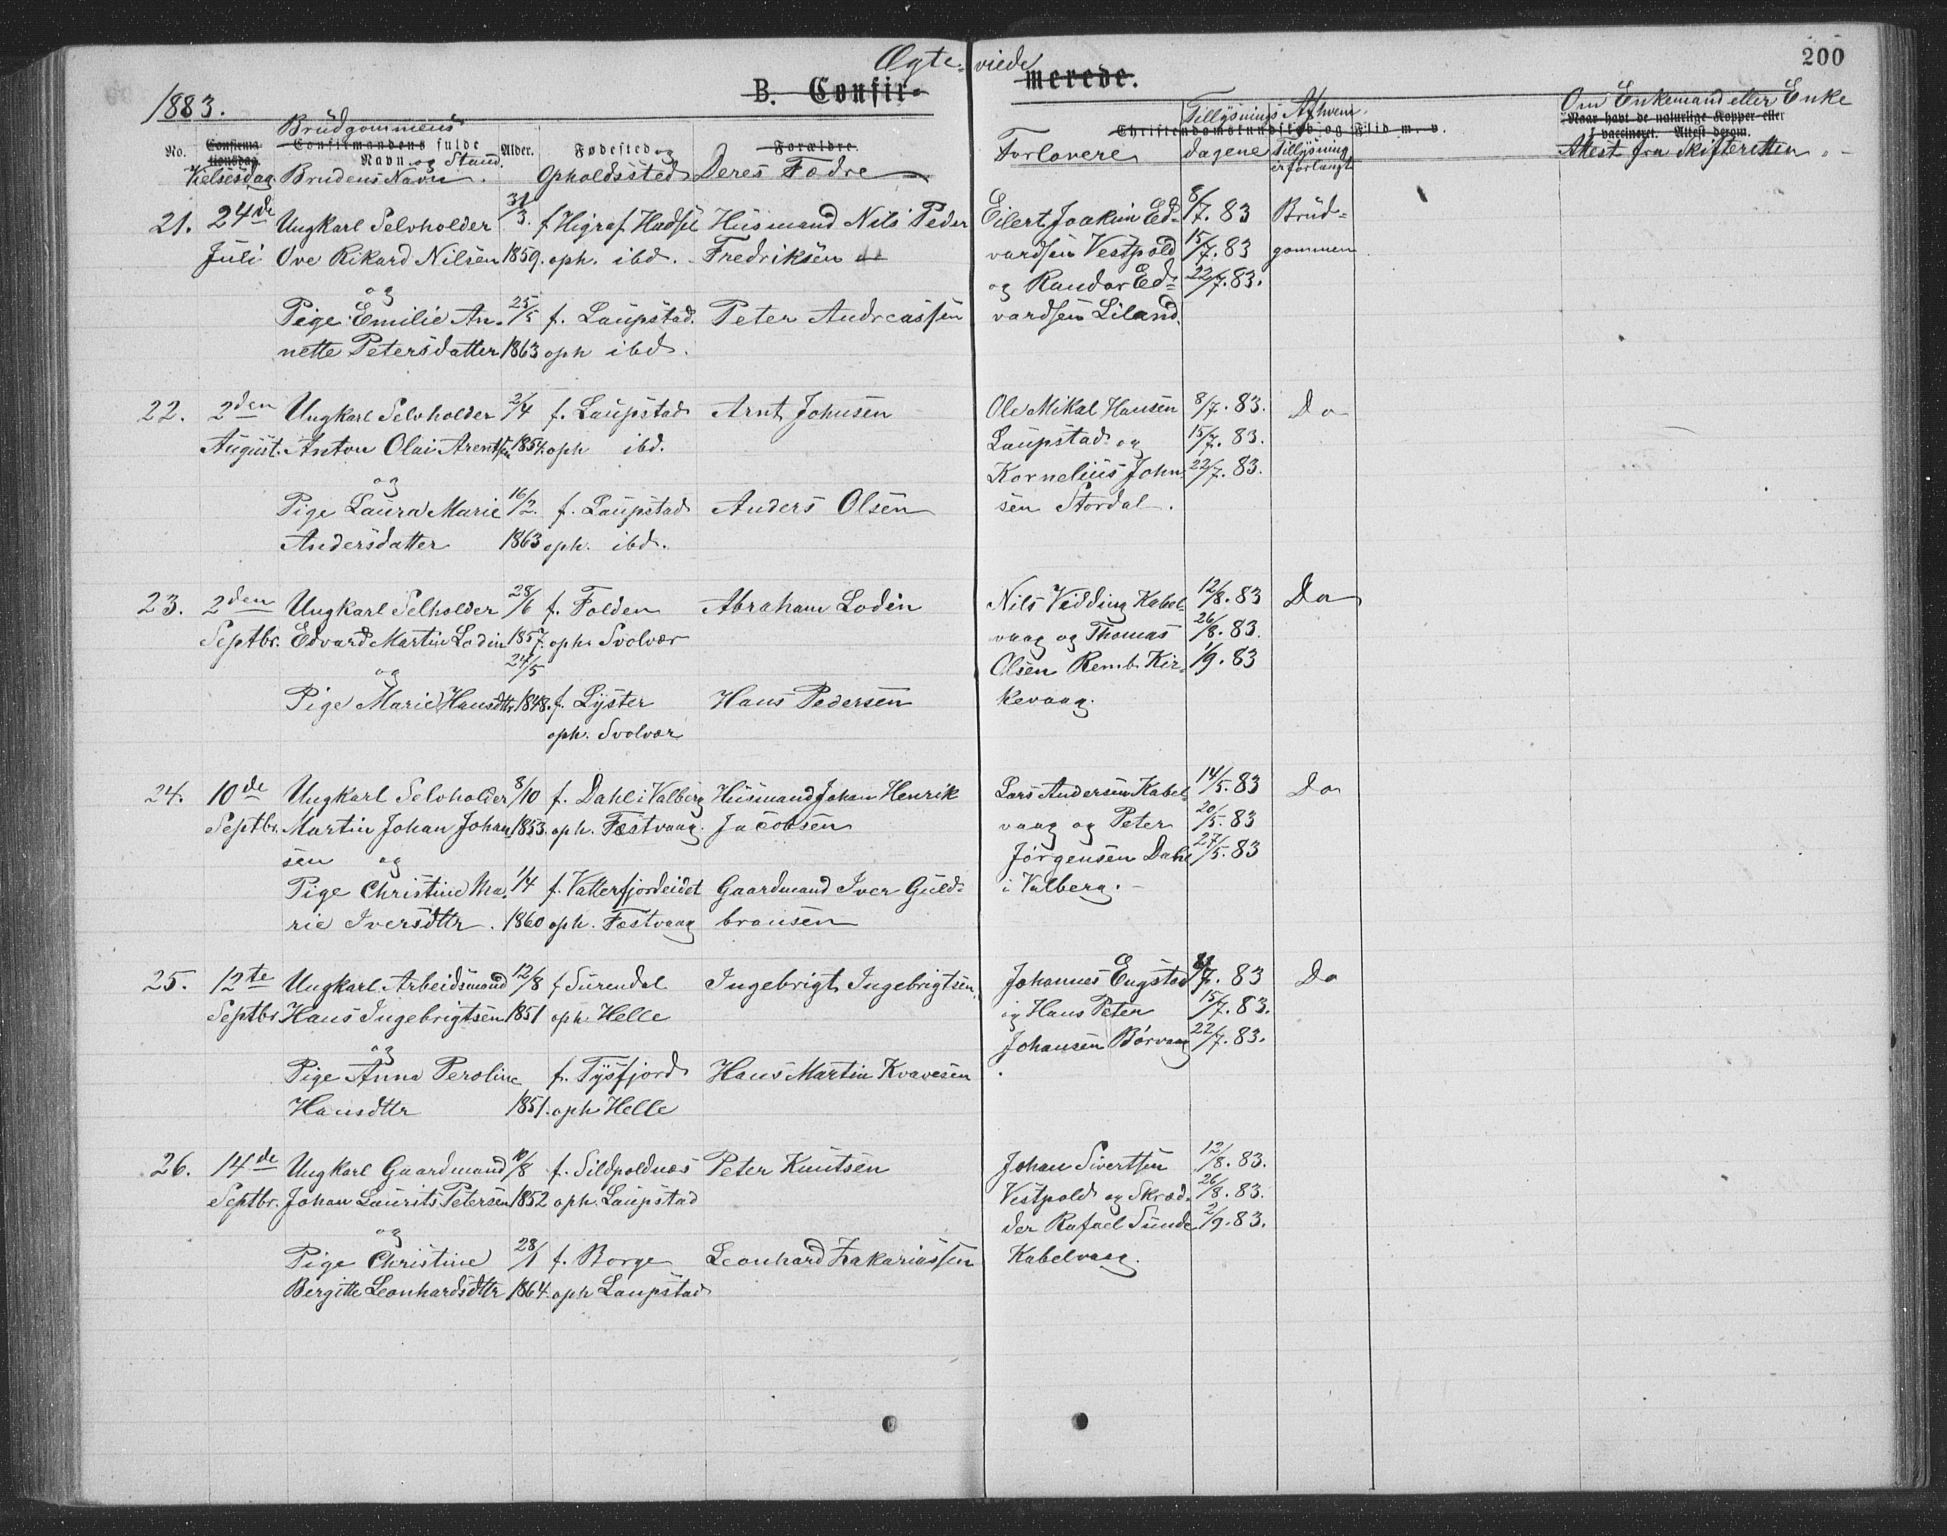 Ægte- viede
B. Confir- merede.
200
1883.
No.
Confirmationsdag
Vielsesdag
Brudgommens
Confirmandens fulde
Navn og Stand.
Brudens Navn.
Alder.
Fødested og
Opholdssted
Forældre.
Deres Fædre
Forlovere
Christendomskundskab og Flid m. v.
Tillysnings
dagene
Af hvem
Tillysning
er forlangt
Om Enkemand eller Enke
Naar havt de naturlige Kopper eller
vaccineret. Attest derom.
Attest fra Skifteretten
21. 24de Ungkarl Selvholder 31/3. f Higraf Hadsel Husmand Nils Peder Eilert Joakim Ed- 8/7. 83 Brud-
Juli Ove Rikard Nilsen 1859. oph. ibd. Fredriksen vardsen Vestpold 15/7. 83 gommen
og og Randor Ed- 22/7. 83.
Pige Emilie An- 25/5 f. Laupstad. Peter Andreassen vardsen Liland.
nette Petersdatter 1863 oph ibd.
22. 2den Ungkarl Selvholder 2/4 f. Laupstad Arnt Johnsen Ole Mikal Hansen 8/7. 83. Do
August. Anton Olai Arentsen 1854. oph ibd. Laupstad og 15/7. 83.
og Kornelius John- 22/7. 83.
Pige Laura Marie 16/2. f. Laupstad Anders Olsen sen Stordal.
Andersdatter 1863 oph. ibd.
23. 2den Ungkarl Selholder 28/6 f. Folden Abraham Lodin Nils Vedding Kabel- 12/8. 83 Do
Septbr. Edvard Martin Lodin 1857. oph. Svolvær vaag og Thomas 26/8. 83.
og 24/5 Olsen Remb. Kir- 1/9. 83
Pige Marie Hansdttr 1848. f. Lyster Hans Pedersen kevaag.
oph. Svolvær
24. 10de Ungkarl Selvholder 8/10 f. Dahl i Valberg Husmand Johan Henrik Lars Andersen Kabel- 14/5. 83 Do
Septbr. Martin Johan Johan 1853. oph. Festvaag. Jacobsen vaag og Peter 20/5. 83
sen og Jørgensen Dahl 27/5. 83
Pige Christine Ma- 1/4 f. Vatterfjordeidet Gaardmand Iver Guld- i Valberg.
rie Iversdttr. 1860 oph. Festvaag bransen
25. 12te Ungkarl Arbeidsmand 12/8 f Surendal Ingebrigt Ingebrigtsen. Johannes Engstad /7. 83 Do
Septbr Hans Ingebrigtsen 1851 oph. Helle og Hans Peter 15/7. 83.
og Johansen Børvaag 22/7. 83.
Pige Anna Peroline f. Tysfjord Hans Martin Kvavesen
Hansdttr 1851. oph Helle
26. 14de Ungkarl Gaardmand /8 f. Sildpoldnæs Peter Knutsen Johan Sivertsen 12/8. 83.
Septbr. Johan Laurits Petersen 1852 oph. Laupstad Vestpold og Skræd- 26/8. 83.
og der Rafael Sunde 2/9. 83.
Pige Christine 28/1 f. Borge Leonhard Zakariassen Kabelvaag.
Bergitte Leonhardsdttr 1864. oph Laupstad